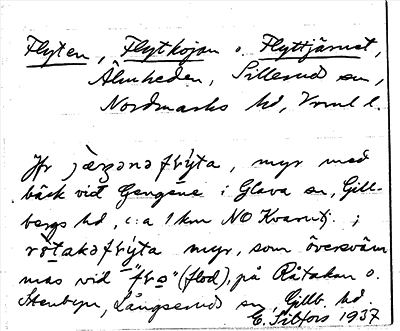 Flyten, Flytkojan o. Flyttjärnet,
Älmheden, Sillerud sn,
Nordmarks hd, Vrml l.
Jfr jærgənəflýta, myr med
bäck vid Gengene i Glava sn, Gill-
bergs hd, c:a 1 km NO Kvarntj. ;
rötakəflýta myr, som översväm
mas vid "flo" (flod), på Råtakan o.
Stenbyn, Långserud sn Gillb. hd.
E. Silfors 1937